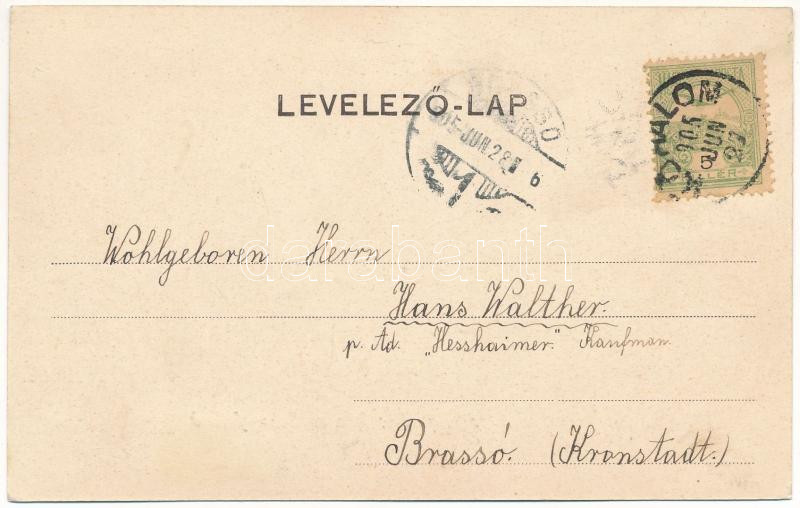 LEVELEZŐ-LAP
905 JUN 28
6
KŐHALOM
905
JUN
28
5
Wohlgeboren Herrn
darabanth
Hans Walther.
p. Ad. „Hesshaimer." Kaufman.
Brassó. (Kronstadt.)